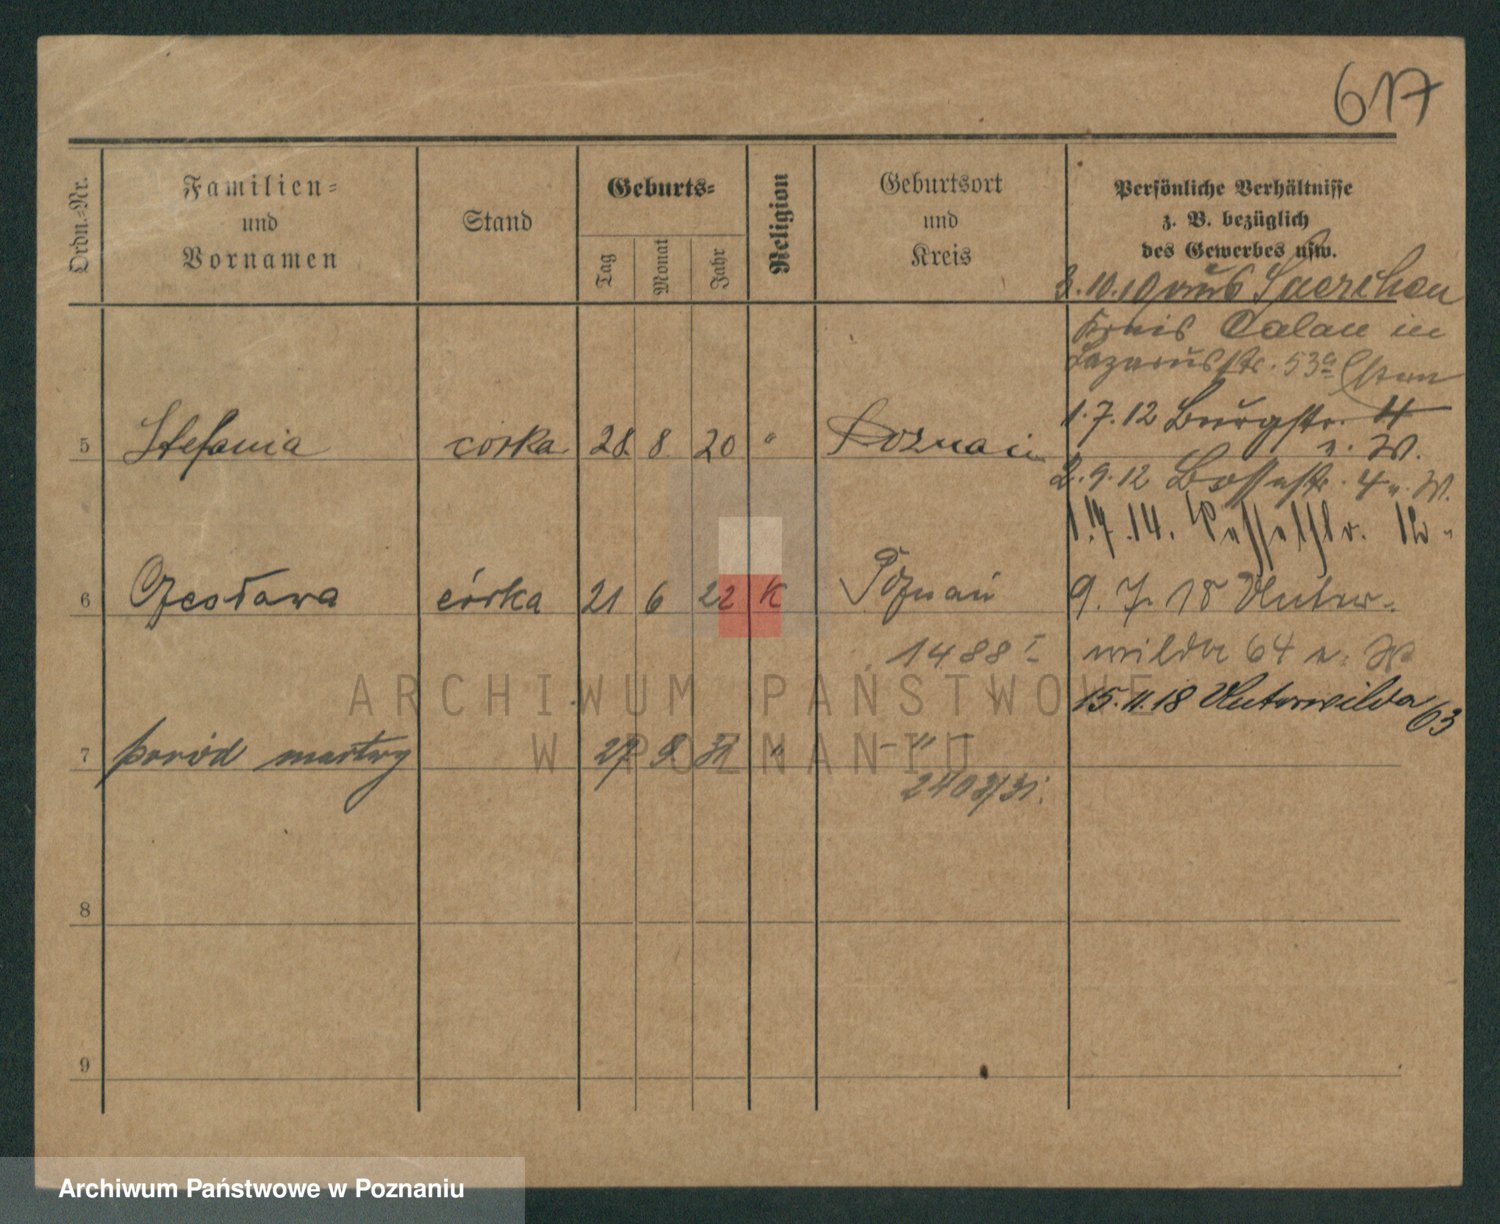 617
Ordn.-Nr.
Familien-
und
Vornamen
Stand
Geburts-
Tag
Monat
Jahr
Religion
Geburtsort
und
Kreis
Persönliche Verhältnisse
z. B. bezüglich
des Gewerbes usw.
3.10.10 aus Saerchen
Kreis Calau in
Lazarusstr. 53a Estern
1.7.12 Burgstr. 4
v. W.
5 Stefania córka 28 8 20 " Poznań
2.9.12 4 v. W.
1.7.14. 12
6 Czesława córka 21 6 22 K Poznań
9.7.18 Unter-
1488 I
wilda 64 v. W
15.11.18 Unterwilda 63
7 poród martwy 27 9 31 " - " -
2403/31.
8
9
ARCHIWUM PAŃSTWOWE
W POZNANIU
Archiwum Państwowe w Poznaniu